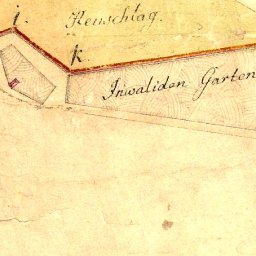 i. Heuschlag.
k.
Invaliden Garten